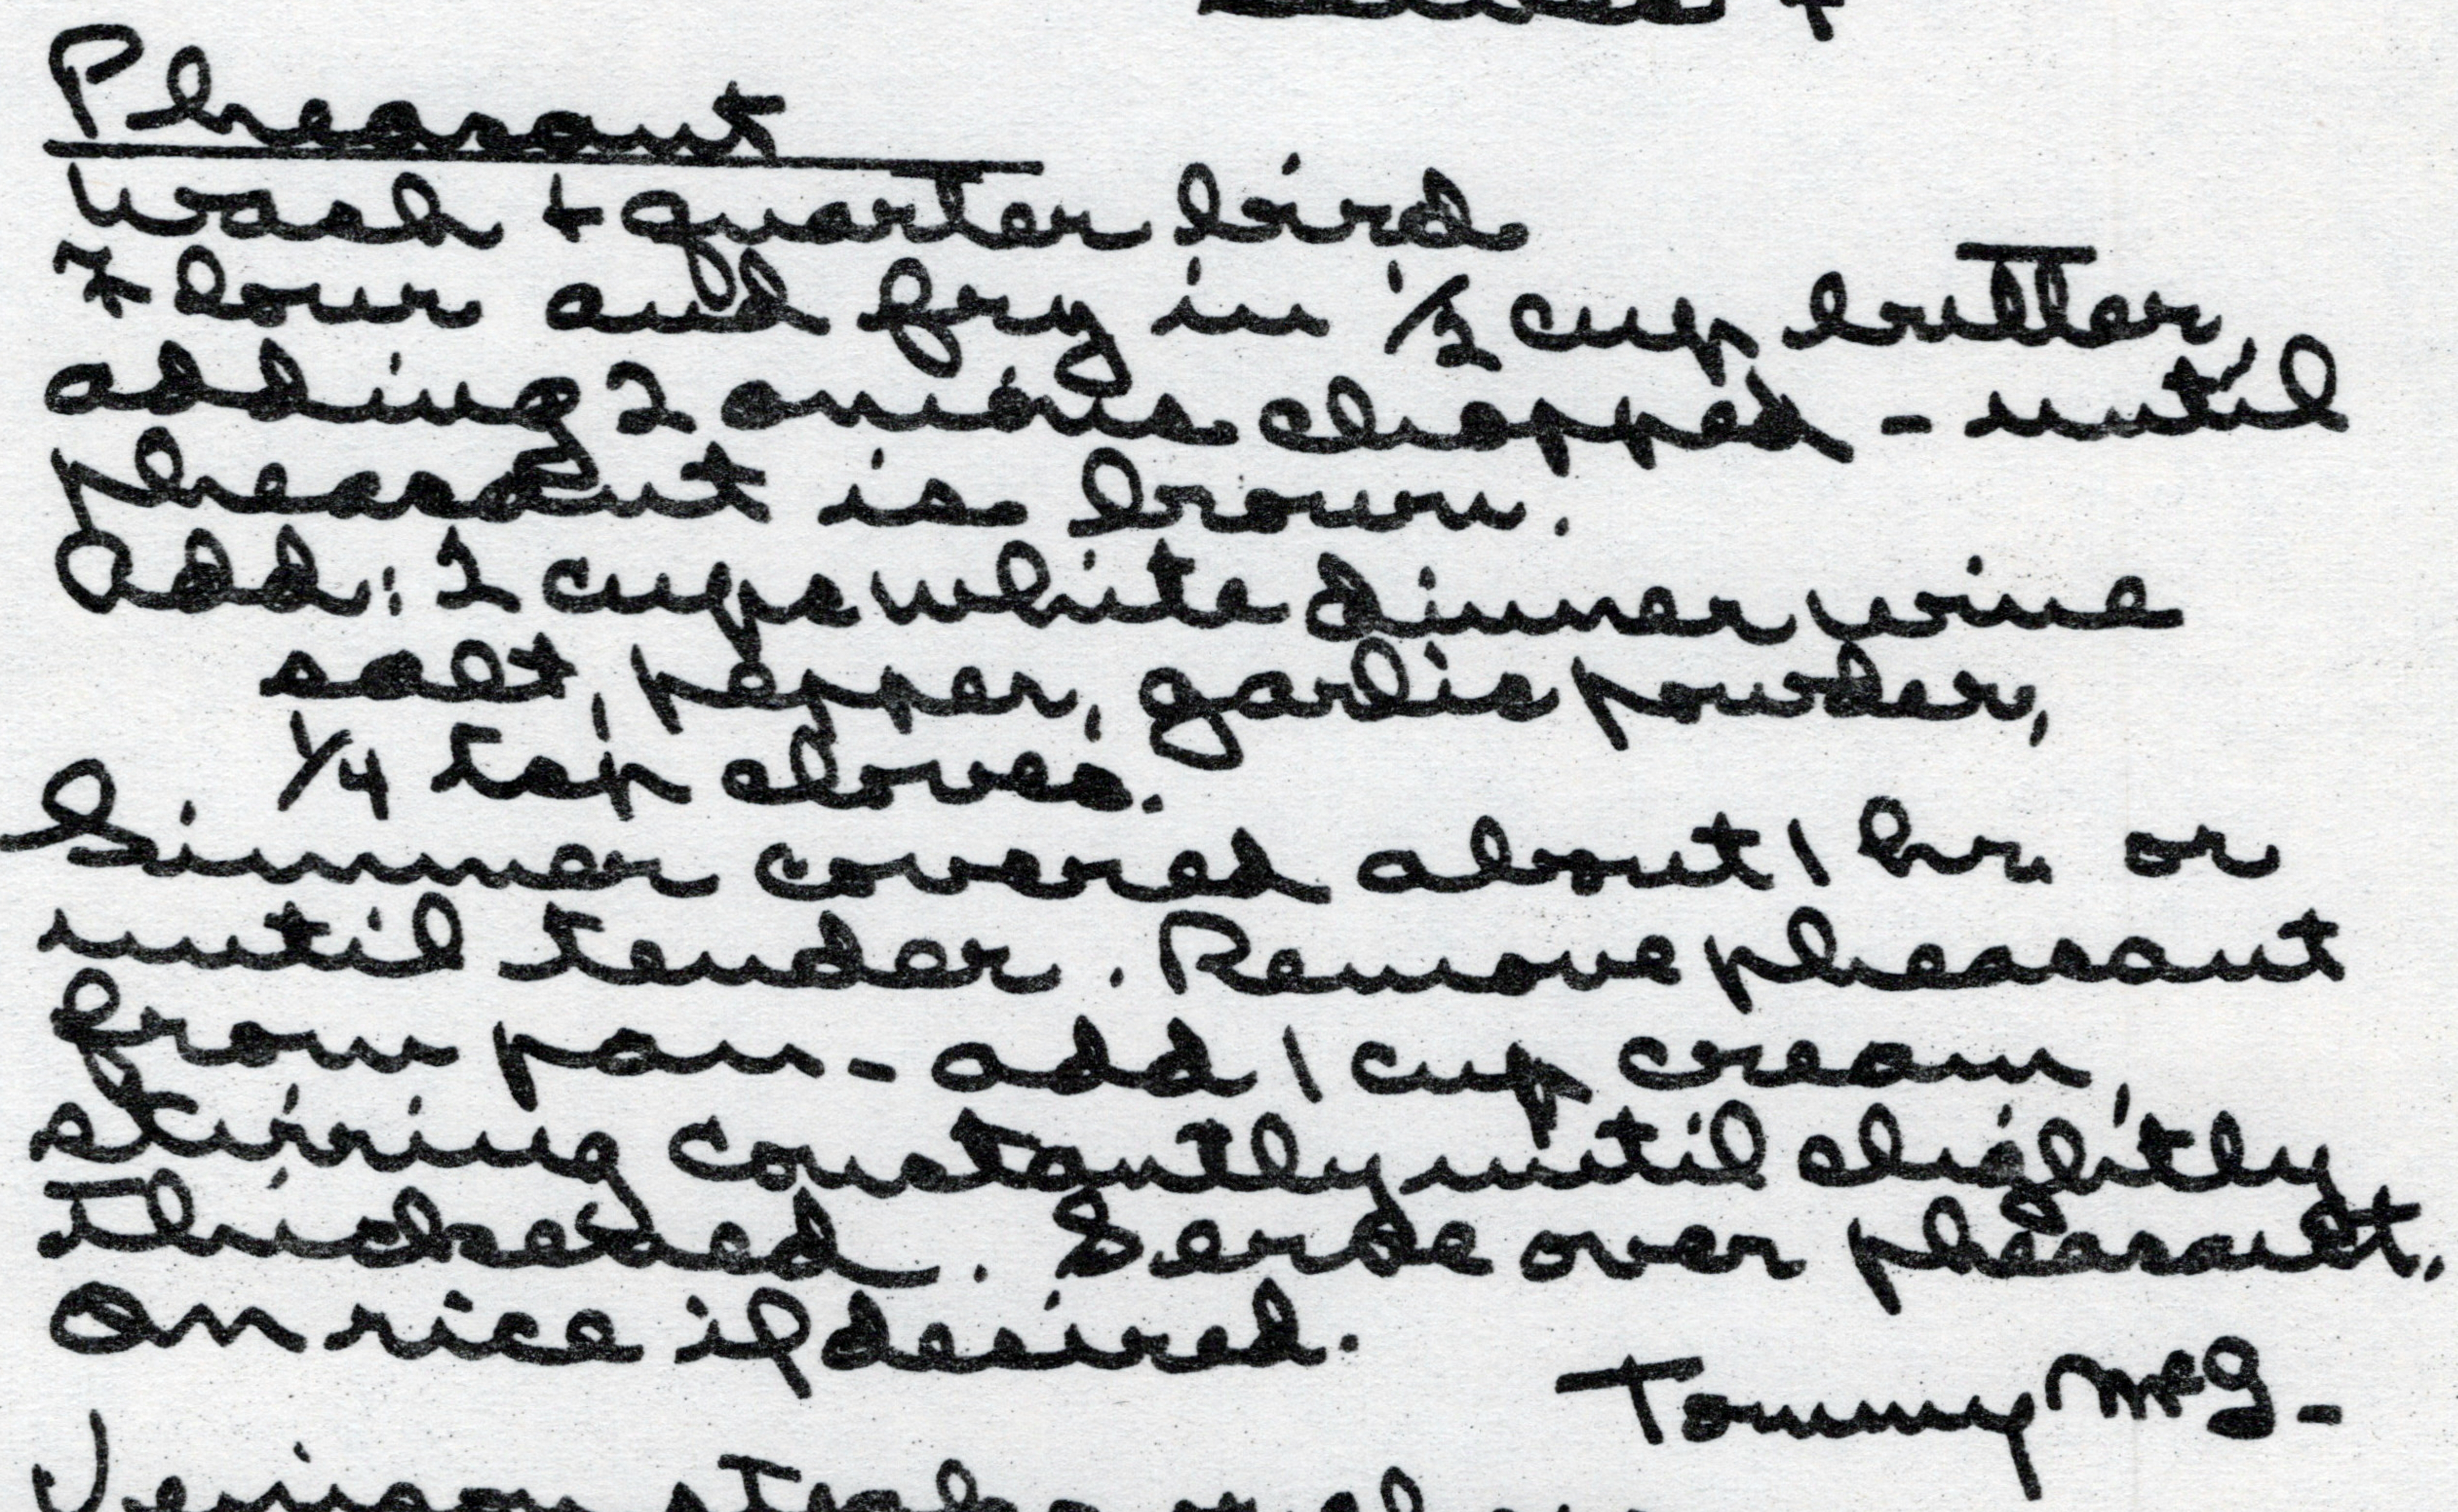 Pheasant
Wash + quarter bird
Flour and fry in 1/2 cup butter,
adding 2 onions chopped - until
pheasant is brown.
Add: 2 cups white dinner wine
salt, pepper, garlic powder,
1/4 tsp cloves.
Simmer covered about 1 hr. or
until tender. Remove pheasant
from pan - add 1 cup cream,
stirring constantly until slightly
thickened. Serve over pheasant.
On rice if desired.
Tommy McG-
Venison steaks